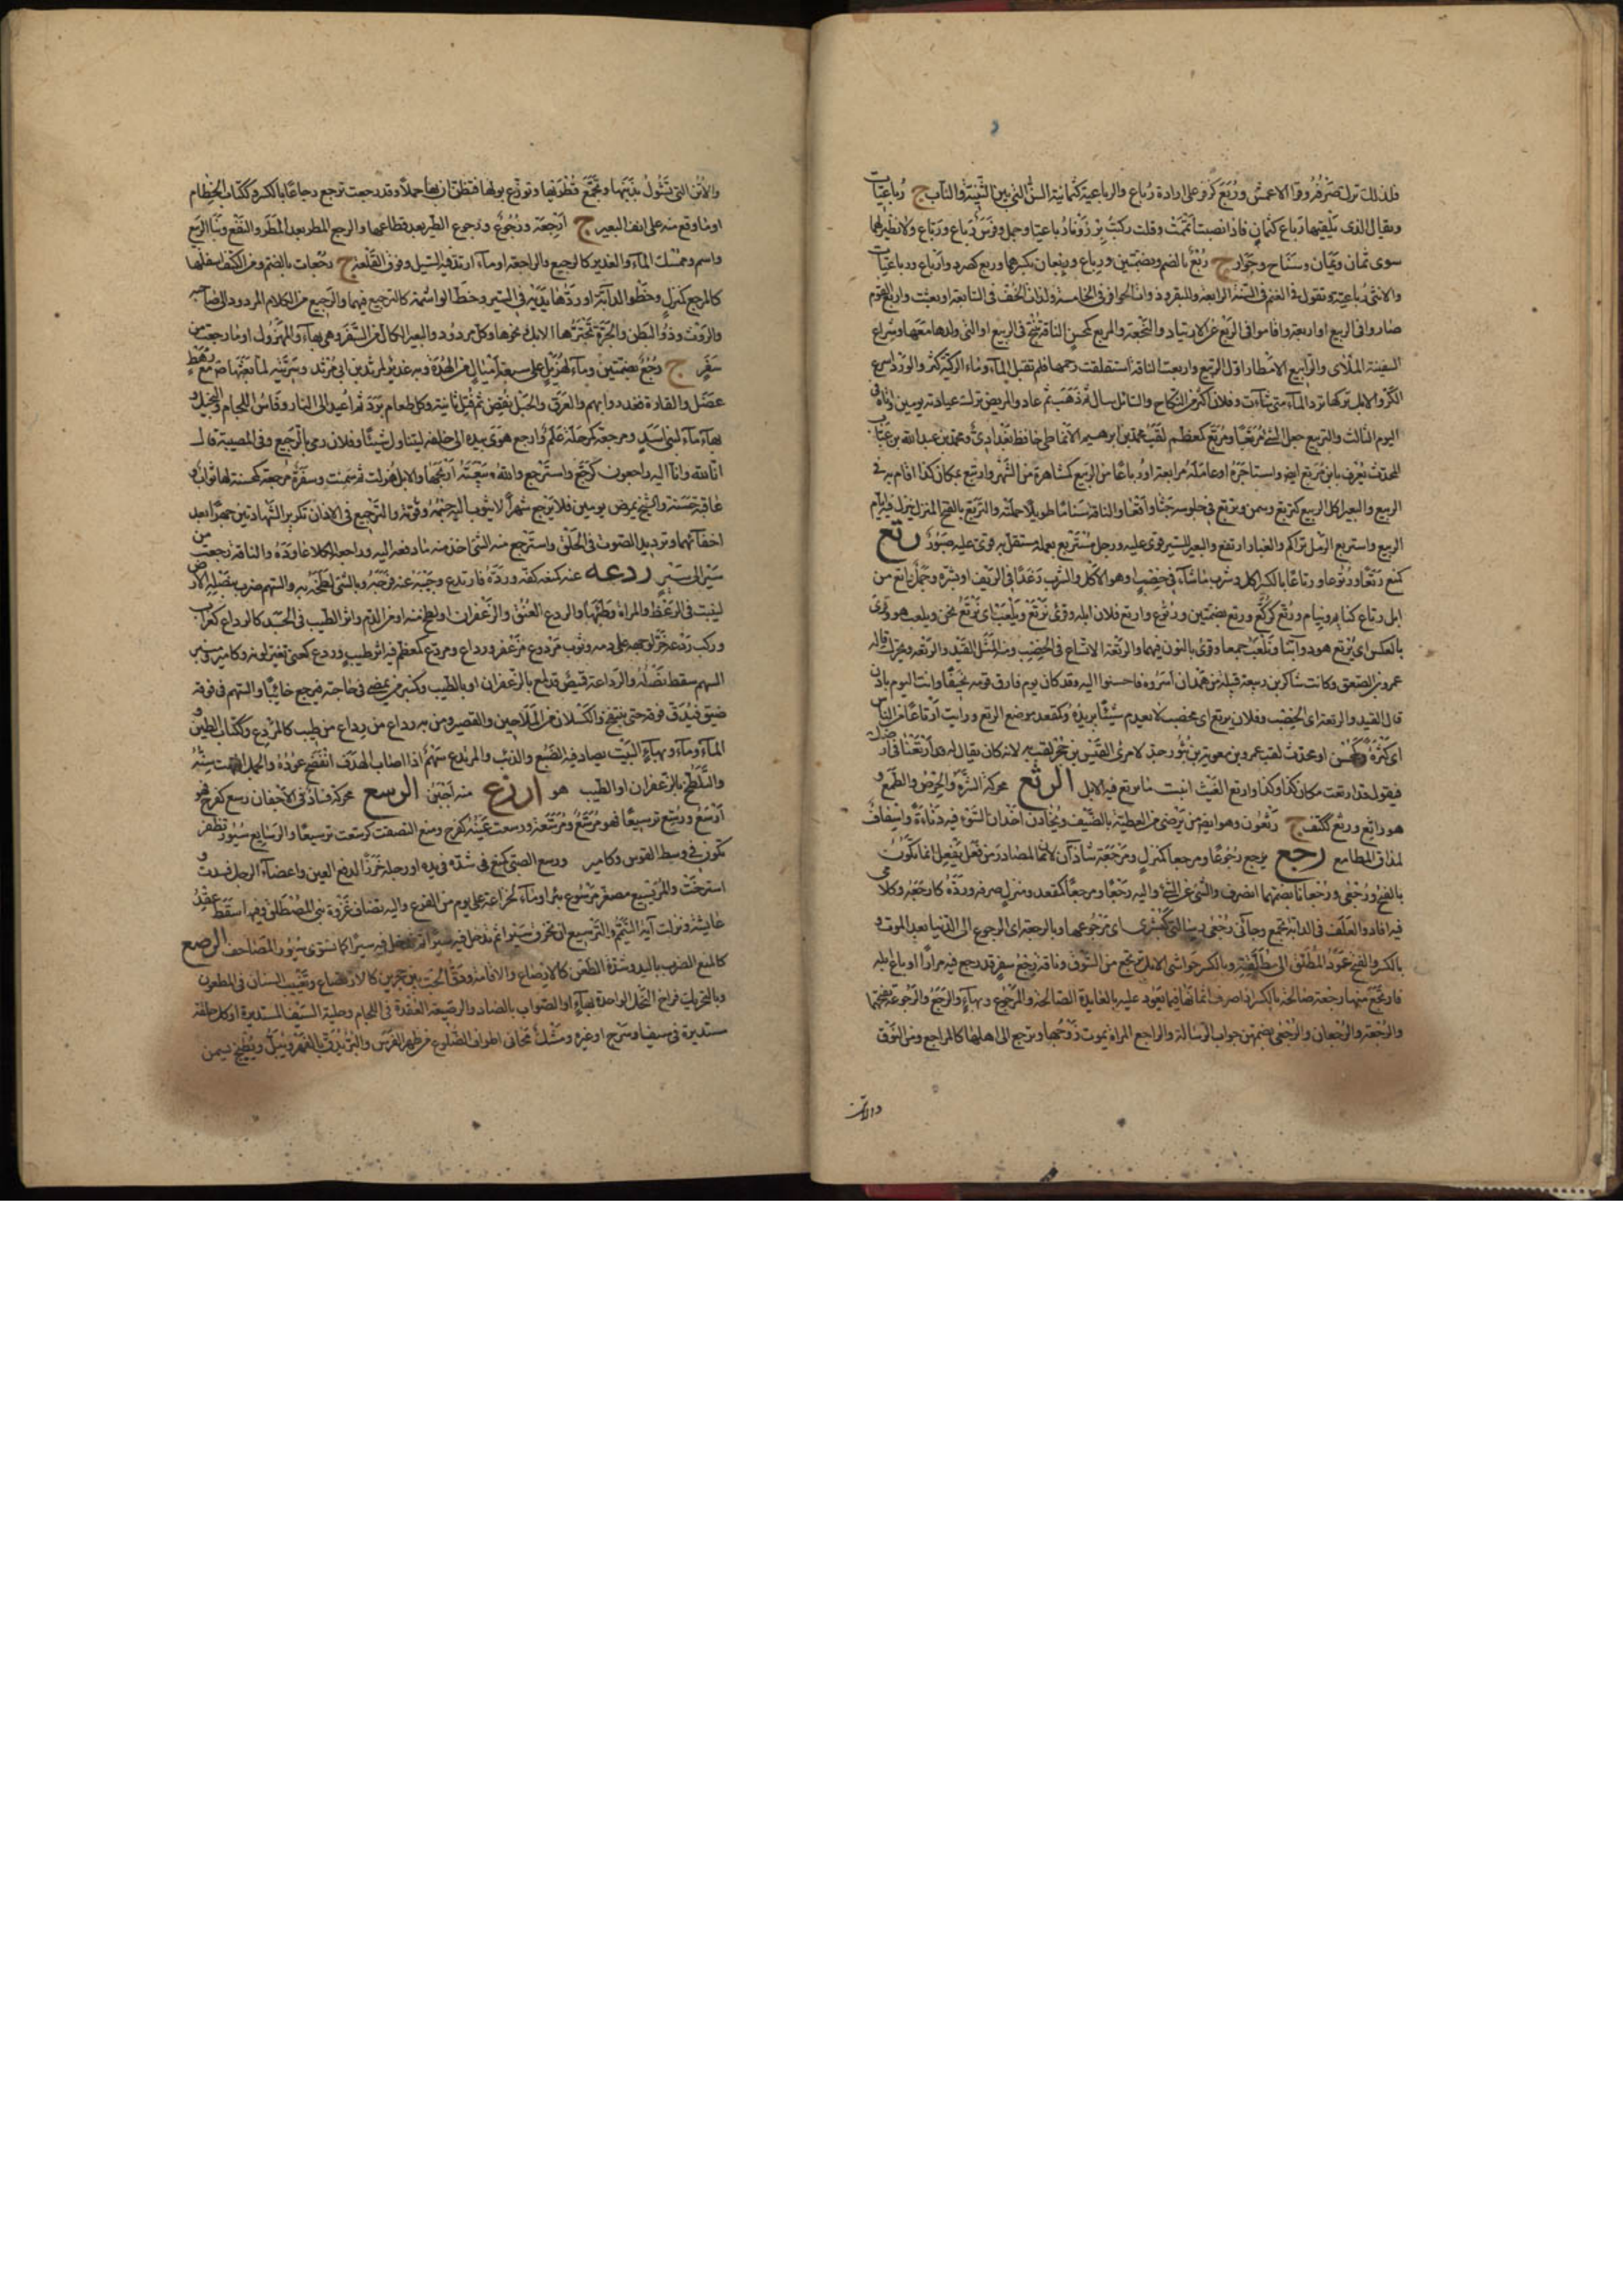 فلذلك ترك صرفه وقرأ الاعمش وربع كزفر على ارادة رباع والرباعية كثمانية السن التى بين الثنية والناب ج رباعيات
ويقال للذى يلقيها رباع كثمان فاذا نصبت اتممت وقلت ركبت برذونا رباعيا وجمل وفرس رباع ورباع ولا نظير لها
سوى ثمان ويمان وشناح وجوار ج ربع بالضم وبضمتين ورباع وربعان بكسرهما وربع كصرد وارباع ورباعيات
والانثى رباعية وتقول للغنم فى السنة الرابعة وللبقر وذوات الحوافر فى الخامسة ولذات الخف فى السابعة اربعت واربع القوم
صاروا فى الربيع او اربعة واقاموا فى المربع عن الارتياد والنجعة والمربع كمحسن الناقة تنتج فى الربيع او التى ولدها معها وشراع
السفينة الملأى والمرابيع الامطار اول الربيع واربعت الناقة استغلقت رحمها فلم تقبل الماء وماء الركية كثر والورد اسرع
الكر والابل تركها ترد الماء متى شاءت وفلان اكثر من النكاح والسائل سال ثم ذهب ثم عاد والمريض ترك عيادته يومين واتاه فى
اليوم الثالث والتربيع جعل الشئ مربعا ومربع كمعظم لقب محمد بن ابرهيم الانماطى حافظ بغدادى ومحمد بن عبد الله بن عتاب
المحدث يعرف بابن مربع ايضا واستاجره او عامله مرابعة ورباعا من الربيع كمشاهرة من الشهر وارتبع بمكان كذا اقام به فى
الربيع والبعير اكل الربيع كتربع وسمن وتربع فى جلوسه جثا واقعا والناقة سناما طويلا حملته والمرتبع بالفتح المنزل ينزل فيه ايام
الربيع واستربع الرمل تراكم والغبار ارتفع والبعير للسير قوى عليه ورجل مستربع بعمله مستقل به قوى عليه صبور رتع
كمنع رتعا ورتوعا ورتاعا بالكسر اكل وشرب ما شاء فى خصب وسعة او هو الاكل والشرب رغدا فى الريف او بشره وجمل راتع من
ابل رتاع كنائم ونيام ورتع كركع ورتع بضمتين ورتوع وارتع فلان ابله وقرئ نرتع ويلعب اى نرتع نحن ويلعب هو وقرئ
بالعكس اى يرتع هو دوابنا ونلعب جميعا وقرئ بالنون فيهما والرتعة الاتساع فى الخصب ومنه المثل القيد والرتعة ويحرك قاله
عمرو بن الصعق وكانت شاكر بن ربيعة قبيلة من همدان اسروه فاحسنوا اليه وقد كان يوم فارق قومه نحيفا وانت اليوم بادن
قال القيد والرتعة اى الخصب وفلان يرتع اى مخصب لا يعدم شيئا يريده وكمقعد موضع الرتع ورايت ارتاعا من الناس
اى كثرة وكمحسن او محدث لقب عمرو بن معوية بن ثور جد لامرئ القيس بن حجر لقب به لانه كان يقال له ارتعنا فى ارضك
فيقول قد ارتعت مكان كذا وكذا وارتع الغيث انبت ما يرتع فيه الابل الرثع محركة الشره والحرص والطمع و
هو راثع ورثع ككتف ج رثعون وهو ايضا من يرضى من العطية بالطفيف ويخادن اخدان السوء فيه دناءة واسفاف
لمداق المطامع رجع يرجع رجوعا ومرجعا كمنزل ومرجعة شاذان لان المصادر من فعل يفعل انما تكون
بالفتح ورجعى ورجعانا بضمهما انصرف والشئ عن الشئ واليه رجعا ومرجعا كمقعد ومنزل صرفه ورده كارجعه وكلامى
فيه افاد والعلف فى الدابة نجع وجاءنى رجعى رسالتى كبشرى اى مرجوعها وبالرجعة اى الرجوع الى الدنيا بعد الموت و
بالكسر والفتح عود المطلق الى مطلقته وبالكسر حواشى الابل ترتجع من السوق وناقة رجع سفر قد رجع فيه مرارا او باع ابله
فارتجع منها رجعة صالحة بالكسر اذا صرف اثمانها فيما يعود عليه بالعائدة الصالحة والمرجوع وبهاء والرجع والرجوعة بفتحهما
والرجعة والرجعان والرجعى بضمهن جواب الرسالة والراجع المراة يموت زوجها وترجع الى اهلها كالمراجع ومن النوق
والاتن
والاتن التى تشول بذنبها وتجمع قطريها وتوزع بولها فتظن ان بها حملا وقد رجعت ترجع رجاعا بالكسر وككتاب الخطام
او ما وقع منه على انف البعير ج ارجعة ورجع ورجوع الطير بعد قطاعها والرجع المطر بعد المطر والنفع ونبات الربيع
واسم وممسك الماء والغدير كالرجيع والراجعة او ماء ارتد فيه السيل وفوق القلعة ج رجعان بالضم ومن الكتف اسفلها
كالمرجع كمنزل وخطو الدابة او ردها يديها فى السير وخط الواشمة كالترجيع فيهما والرجيع من الكلام المردود الى صاحبه
والروث وذو البطن والجرة تجترها الابل ونحوها وكل مردود والبعير الكال من السفر وهى بهاء والمهزول او ما رجعته من
سفر ج رجع بضمتين وماء لهذيل على سبعة اميال من الهدة وبه غدر بمرثد بن ابى مرثد وسريته لما بعثها صلعم مع رهط
عضل والقارة فغدروا بهم والعرق والحبل نقض ثم فتل ثانية وكل طعام برد ثم اعيد الى النار وفاس اللجام والبخيل و
بهاء ماء لبنى اسد ومرجعة كمرحلة علم وارجع اهوى بيده الى خلفه ليتناول شيئا وفلان رمى بالرجيع وفى المصيبة قال
انا لله وانا اليه راجعون كرجع واسترجع والله بيعته اربحها والابل هزلت ثم سمنت وسفرة مرجعة كمحسنة لها ثواب و
عاقبة حسنة والشيخ يمرض يومين فلا يرجع شهرا لا يثوب اليه جسمه وقوته والترجيع فى الاذان تكرير الشهادتين جهرا بعد
اخفائهما وترديد الصوت فى الحلق واسترجع منه الشئ اخذ منه ما دفعه اليه وراجعه الكلام عاوده والناقة رجعت من
سير الى سير ردعه عنه كمنعه كفه ورده فارتدع وجيبه عنه فرجه وبالشئ لطخه به والسهم ضرب بنصله الارض
ليثبت فى الرعظ والمراة وطئها والردع العنق والزعفران او لطخ منه او من الدم واثر الطيب فى الجسد كالرداع كغراب و
ركب ردعه خر لوجهه على دمه وثوب مردوع مزعفر ورداع ومردع كمعظم فيه اثر طيب وردع كعنى تغير لونه وكامير ومنبر
السهم سقط نصله والرداعة قميص قد لمع بالزعفران او بالطيب وكمنبر من يمضى فى حاجة فيرجع خائبا والسهم فى فوقه
ضيق فيدق فوقه حتى ينفتح والكسلان من الملاحين والقصير ومن به رداع من طيب كالمردع وككتاب الطين و
الماء وماء وبهاء البيت يصاد فيه الضبع والذئب والمرتدع سهم اذا اصاب الهدف انفضخ عوده والجمل انتهت سنه
والمتلطخ بالزعفران او الطيب هو ارزع منه اجبن الرسع محركة فساد فى الاجفان رسع كفرح فهو
ارسع ورسع ترسيعا فهو مرسع ومرسعة ورسعت عينه كفرح ومنع التصقت كرسعت ترسيعا والرسائع سيور تضفر
تكون فى وسط القوس وكامير ورسع الصبى كمنع فى شده فى يده او رجله خرزا لدفع العين واعضاء الرجل فسدت و
استرخت والمريسيع مصغر مرسوع بئر او ماء لخزاعة على يوم من الفرع واليه تضاف غزوة بنى المصطلق وفيه سقط عقد
عائشة ونزلت اية التيمم والترسيع ان تخرق سيرا ثم تدخل فيه سيرا كما تسوى سيور المصاحف الرصع
كالمنع الضرب باليد وشدة الطعن كالارصاع والاقامة ودق الحب بين حجرين كالارتصاع وتغييب السنان فى المطعون
وبالتحريك فراخ النحل الواحدة بهاء او الصواب بالضاد والرصيعة العقدة فى اللجام وحلية السيف المستديرة او كل حلقة
مستديرة فى سيف او سرج او غيره ومشك محانى اطراف الضلوع من ظهر الفرس والبر يدق بالفهر ويبل ويطبخ بسمن